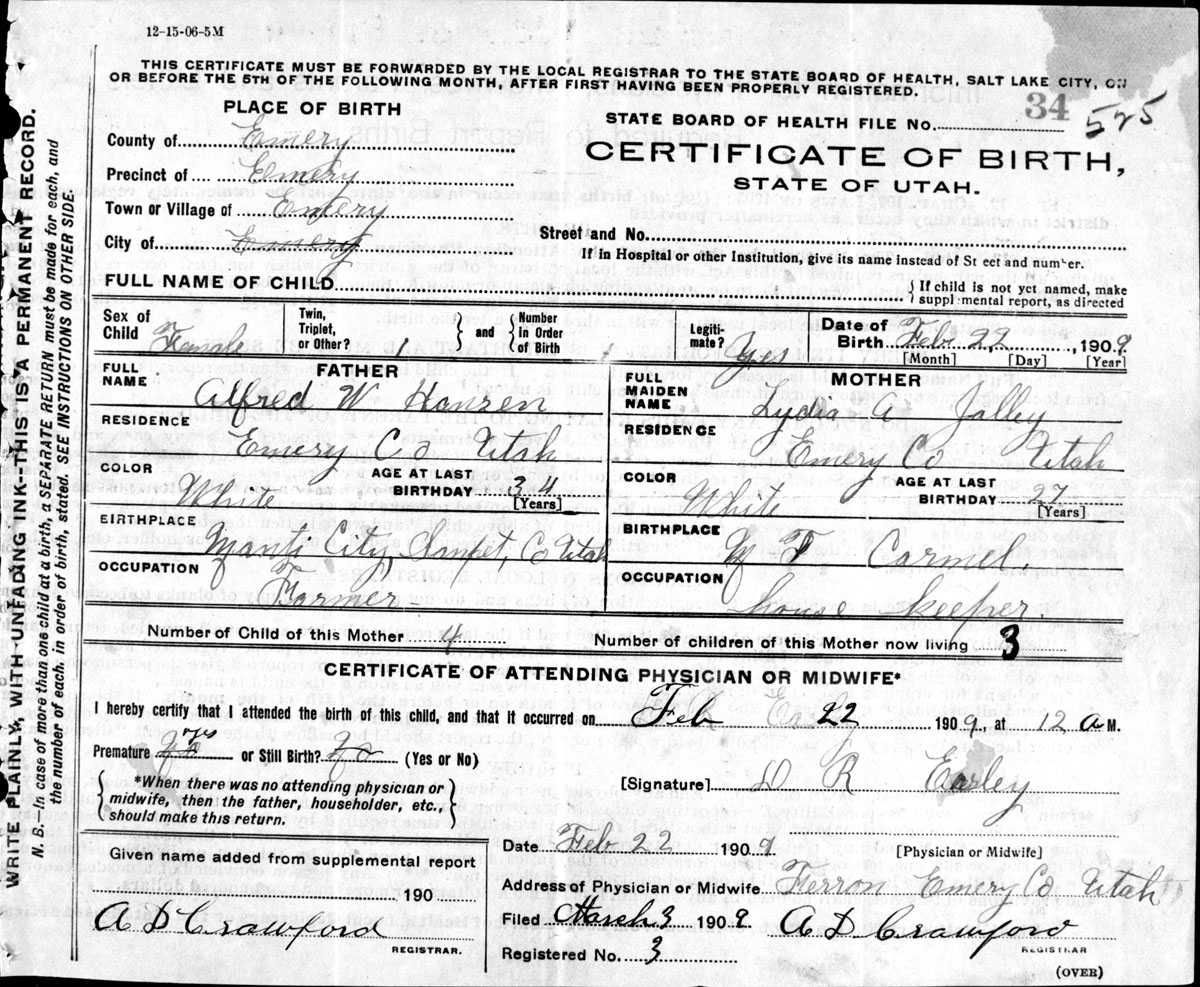 12-15-06-5M
THIS CERTIFICATE MUST BE FORWARDED BY THE LOCAL REGISTRAR TO THE STATE BOARD OF HEALTH, SALT LAKE CITY, ON
OR BEFORE THE 5TH OF THE FOLLOWING MONTH, AFTER FIRST HAVING BEEN PROPERLY REGISTERED.
PLACE OF BIRTH
STATE BOARD OF HEALTH FILE No. 34 525
County of Emery
CERTIFICATE OF BIRTH,
Precinct of Emery
STATE OF UTAH.
Town or Village of Emery
City of Emery
Street and No.
If in Hospital or other Institution, give its name instead of St eet and number.
FULL NAME OF CHILD
If child is not yet named, make
suppl mental report, as directed
Sex of Child Female
Twin, Triplet, or Other? 1 and Number in Order of Birth
Legiti-mate? Yes
Date of Birth Feb 22, 1909
[Month] [Day] [Year]
FATHER
FULL NAME Alfred W Hansen
RESIDENCE Emery Co Utah
COLOR White
AGE AT LAST BIRTHDAY 34
[Years]
BIRTHPLACE Manti City, Sanpet, Co Utah
OCCUPATION Farmer
MOTHER
FULL MAIDEN NAME Lydia A Jolley
RESIDENCE Emery Co Utah
COLOR White
AGE AT LAST BIRTHDAY 27
[Years]
BIRTHPLACE Mt Carmel,
OCCUPATION house keeper,
Number of Child of this Mother 4
Number of children of this Mother now living 3
CERTIFICATE OF ATTENDING PHYSICIAN OR MIDWIFE*
I hereby certify that I attended the birth of this child, and that it occurred on Feb 22 1909, at 12 a M.
Premature or Still Birth? (Yes or No)
*When there was no attending physician or
midwife, then the father, householder, etc.,
should make this return.
[Signature] D R Easley
Date Feb 22 1909
[Physician or Midwife]
Given name added from supplemental report
190
Address of Physician or Midwife Ferron Emery Co Utah
A D Crawford
REGISTRAR.
Filed March 3 1909 A D Crawford
REGISTRAR
Registered No. 3
(OVER)
WRITE PLAINLY, WITH UNFADING INK—THIS IS A PERMANENT RECORD.
N. B.—In case of more than one child at a birth, a SEPARATE RETURN must be made for each, and
the number of each, in order of birth, stated. SEE INSTRUCTIONS ON OTHER SIDE.